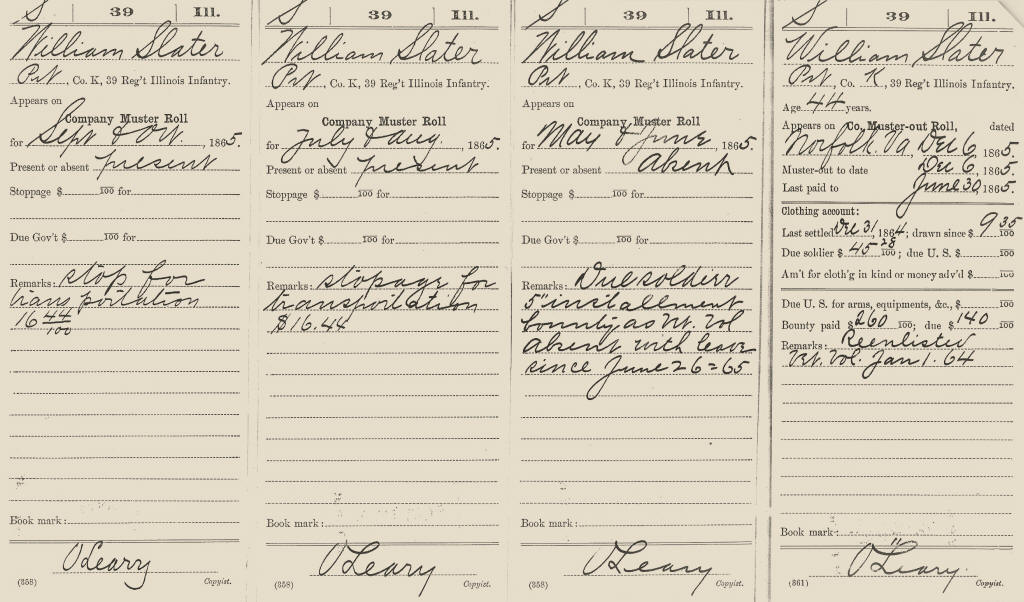 S 39 Ill.
William Slater
Pvt, Co. K, 39 Reg't Illinois Infantry.
Appears on
Company Muster Roll
for Sept & Oct., 1865.
Present or absent present
Stoppage $ 100 for
Due Gov't $ 100 for
Remarks: stop for
transportation
16 44/100
Book mark:
O'Leary
(358) Copyist.
S 39 Ill.
William Slater
Pvt, Co. K, 39 Reg't Illinois Infantry.
Appears on
Company Muster Roll
for July & Aug., 1865.
Present or absent present
Stoppage $ 100 for
Due Gov't $ 100 for
Remarks: stopage for
transportation
$16.44
Book mark:
O'Leary
(358) Copyist.
S 39 Ill.
William Slater
Pvt, Co. K, 39 Reg't Illinois Infantry.
Appears on
Company Muster Roll
for May & June, 1865.
Present or absent Absent
Stoppage $ 100 for
Due Gov't $ 100 for
Remarks: Due soldier
5" installment
bounty as Vt. Vol
absent with leave
since June 26=65
Book mark:
O'Leary
(358) Copyist.
S 39 Ill.
William Slater
Pvt, Co. K, 39 Reg't Illinois Infantry.
Age 44 years.
Appears on Co. Muster-out Roll, dated
Norfolk. Va, Dec 6, 1865.
Muster-out to date Dec 6, 1865.
Last paid to June 30, 1865.
Clothing account:
Last settled Dec 31, 1864; drawn since $ 9 35/100
Due soldier $ 45 28/100; due U. S. $ 100
Am't for cloth'g in kind or money adv'd $ 100
Due U. S. for arms, equipments, &c., $ 100
Bounty paid $ 260 100; due $ 140 100
Remarks: Reenlisted
Vet. Vol. Jan 1. 64
Book mark:
O'Leary
(361) Copyist.